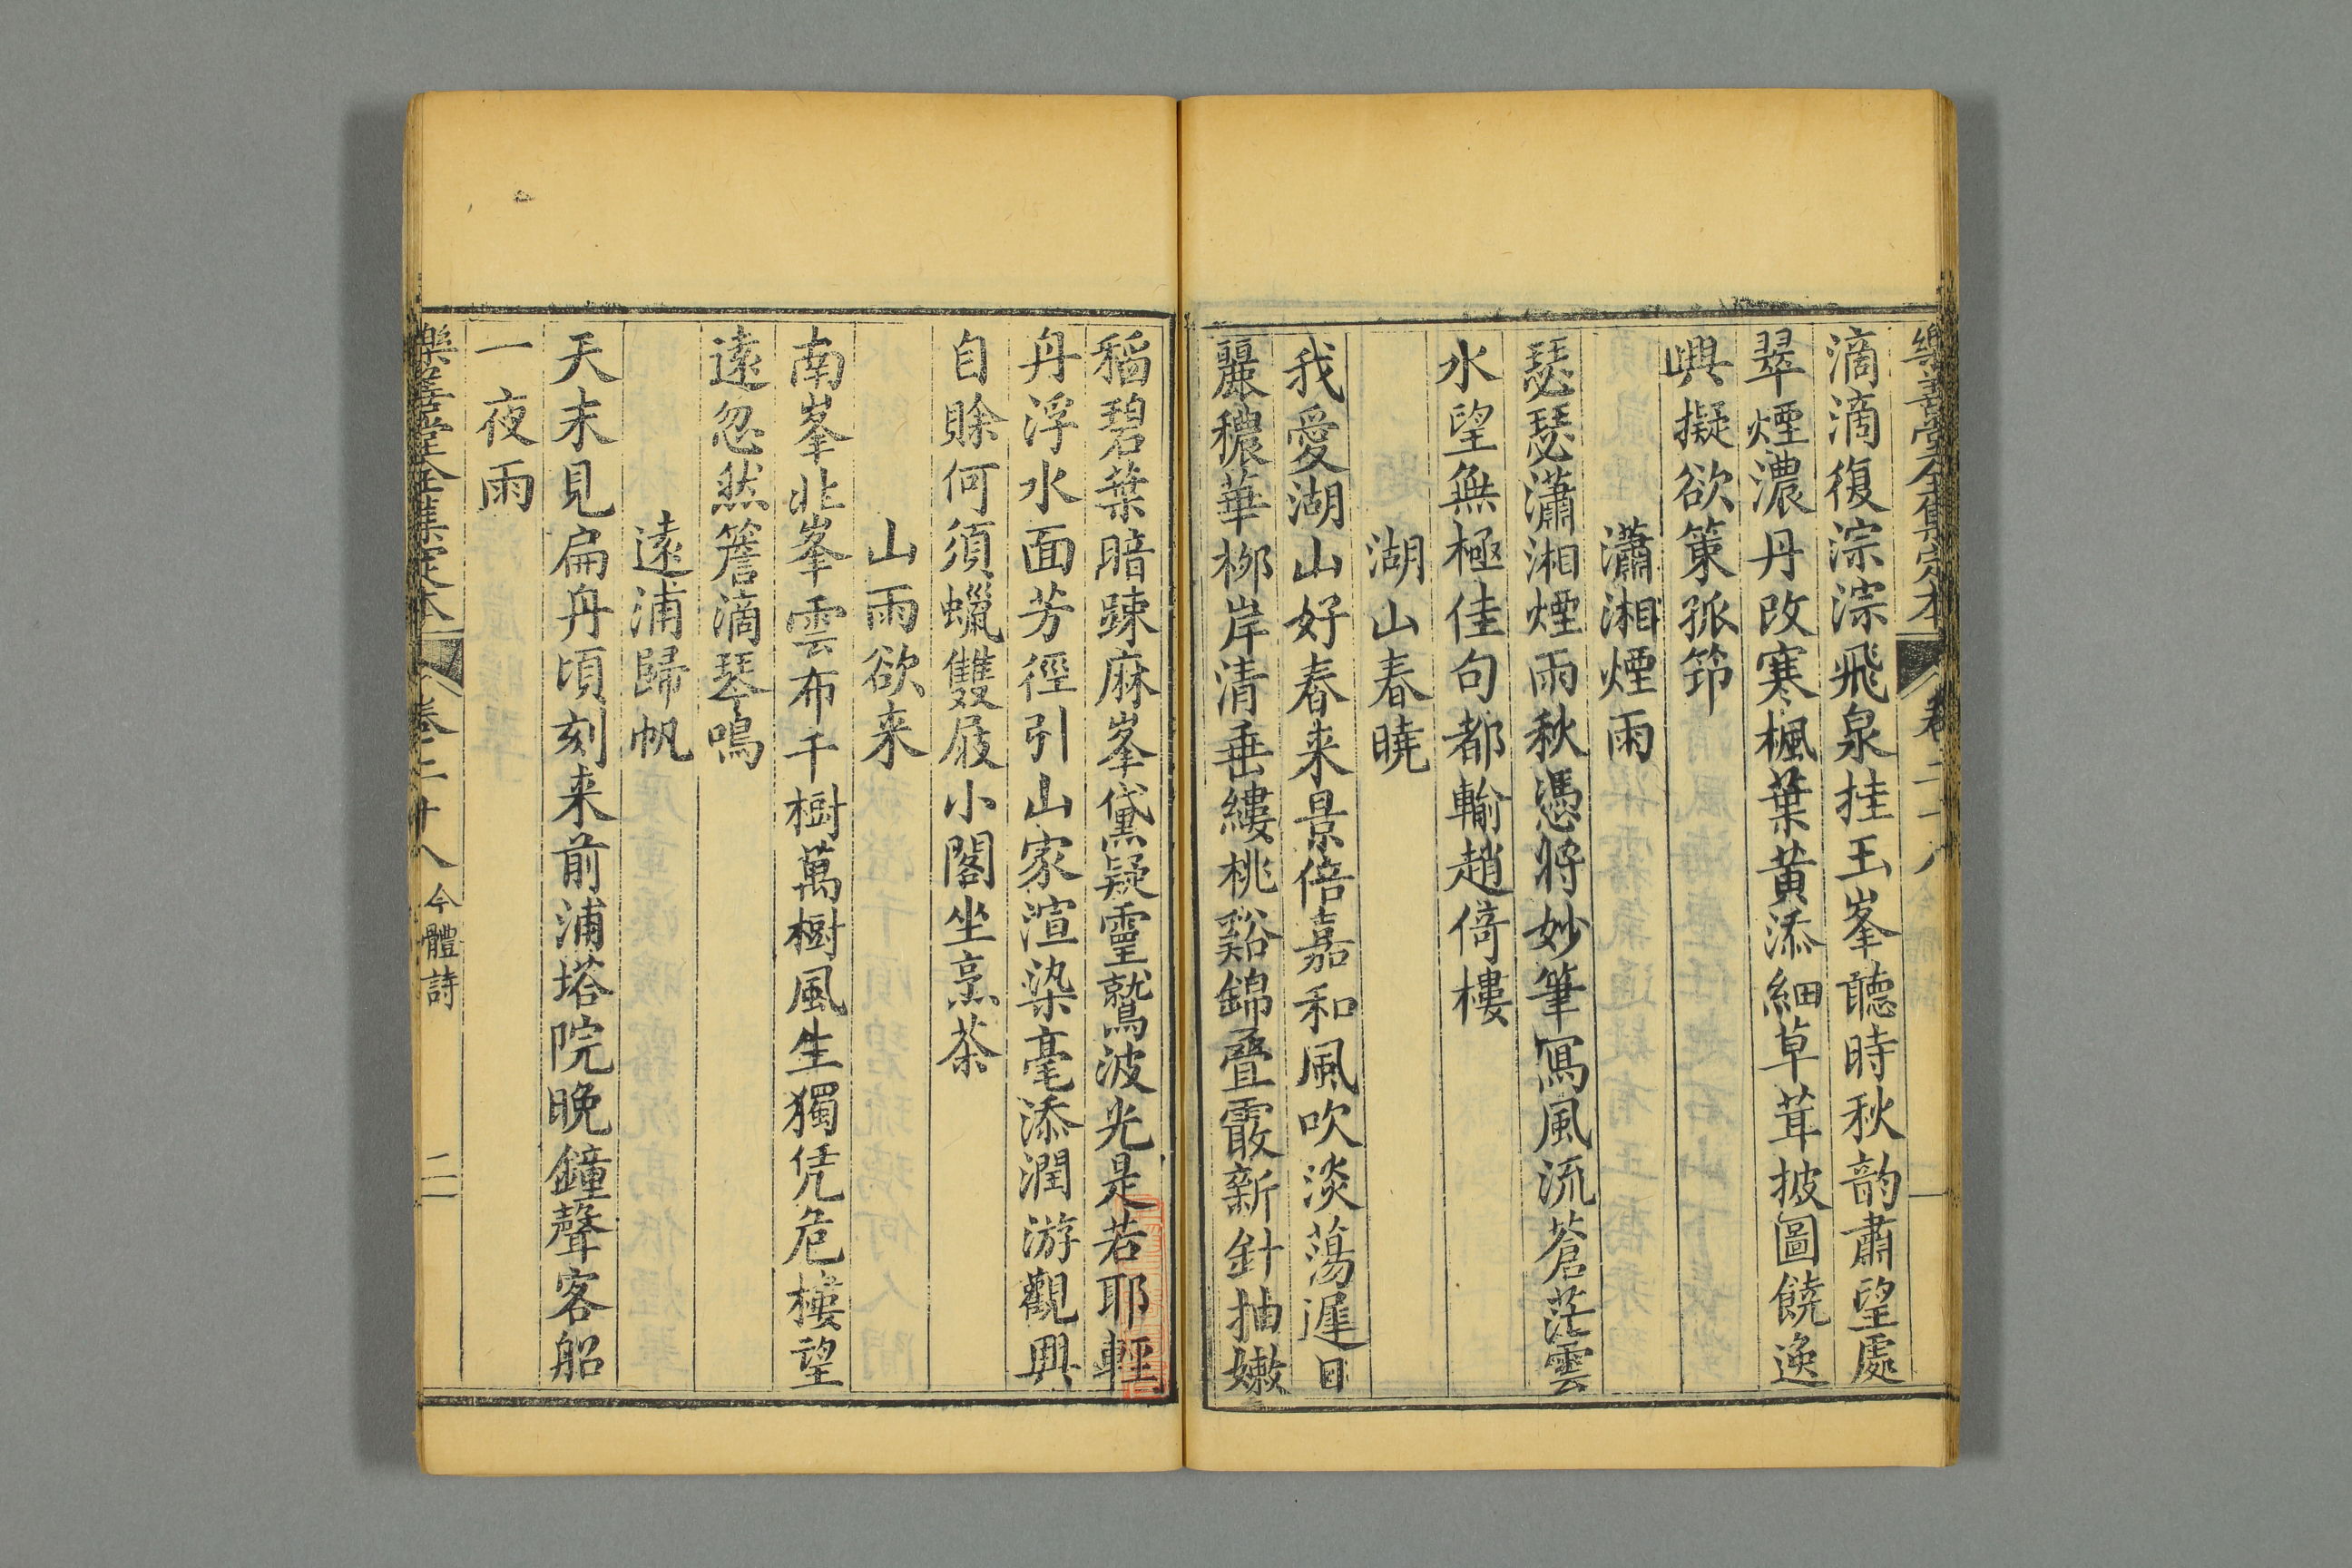 樂善堂全集定本 卷二十八
滴滴復淙淙飛泉挂玉峯聽時秋韵肅望處
翠煙濃丹改寒楓葉黃添細草茸披圖饒逸
興擬欲策孤笻
瀟湘煙雨
瑟瑟瀟湘煙雨秋憑將妙筆寫風流蒼茫雲
水望無極佳句都輸趙倚樓
湖山春曉
我愛湖山好春来景倍嘉和風吹淡蕩遲日
麗穠華栁岸清垂縷桃谿錦疊霞新針抽嫩
稻碧葉暗踈麻峯黛疑靈鷲波光是若耶輕
舟浮水面芳徑引山家渲染毫添潤游觀興
自賒何須蠟雙屐小閣坐烹茶
山雨欲来
南峯北峯雲布千樹萬樹風生獨凭危樓望
遠忽然簷滴琴鳴
遠浦歸帆
天末見扁舟頃刻来前浦塔院晚鐘聲客船
一夜雨
樂善堂全集定本 卷二十八 今體詩 二